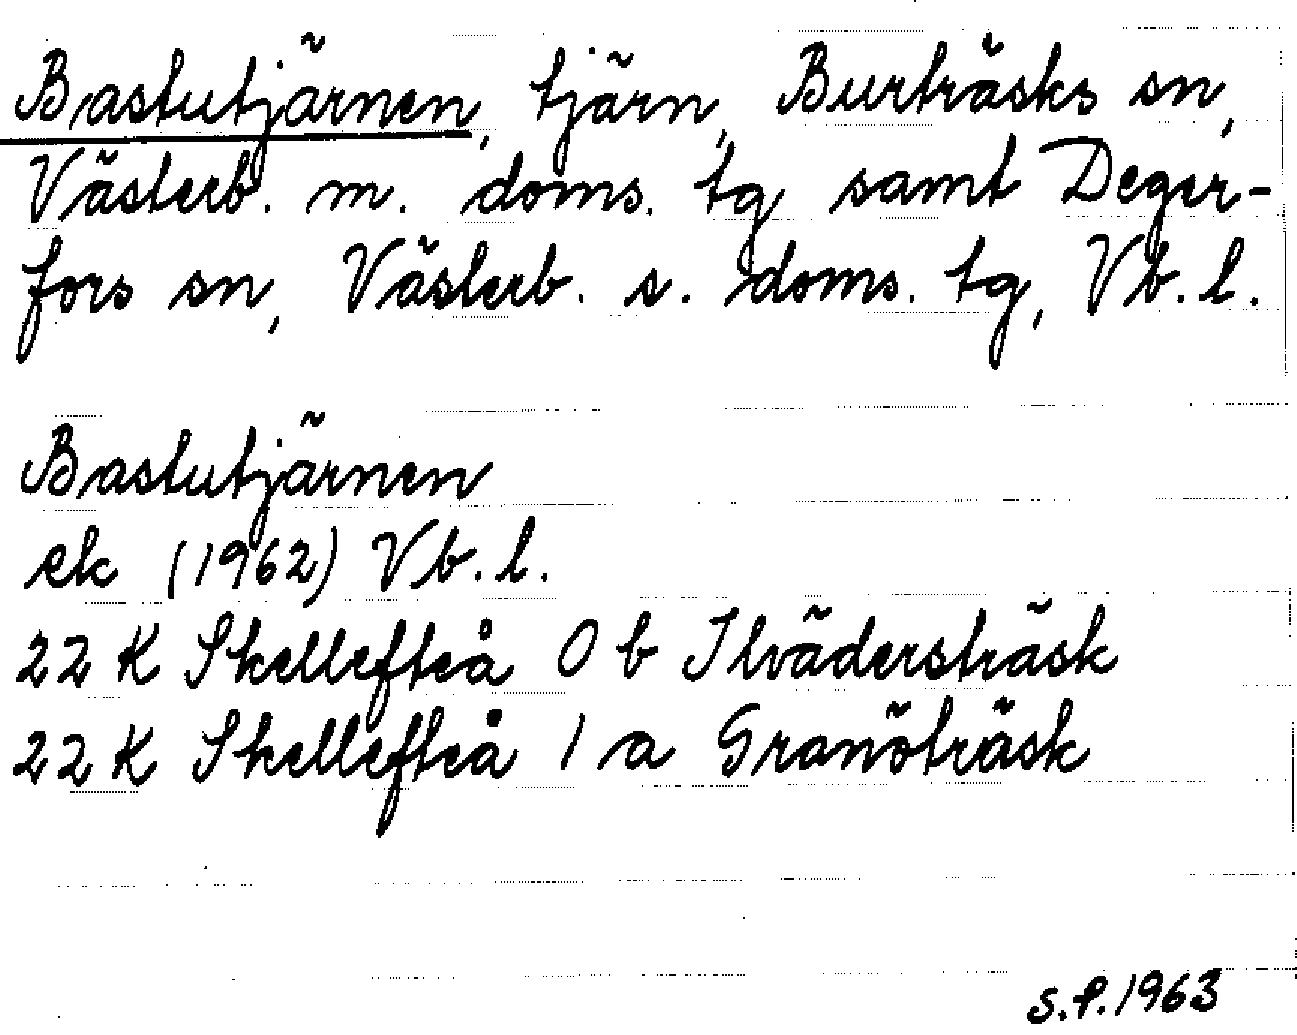 Bastutjärnen, tjärn, Burträsks sn,
Västerb. m. doms. tg samt Deger-
fors sn, Västerb. s. doms. tg, Vb. l.
Bastutjärnen
ek (1962) Vb. l.
22 K Skellefteå 0 b Ilvädersträsk
22 K Skellefteå 1 a Granöträsk
S.P. 1963